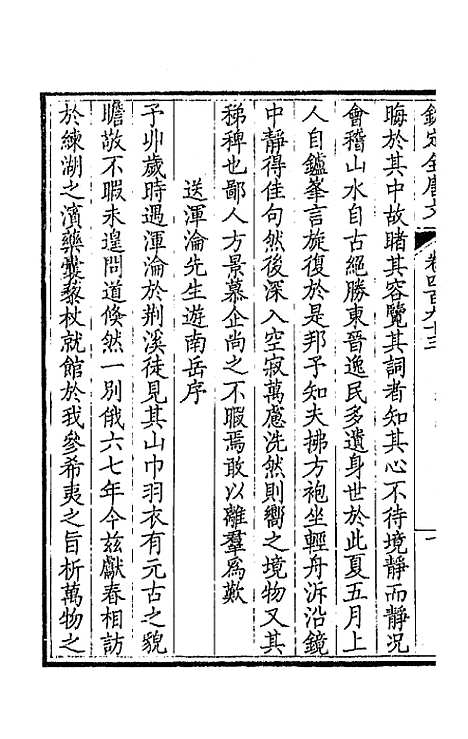 欽定全唐文 卷四百九十三 一
晦於其中故睹其容覽其詞者知其心不待境靜而靜况
會稽山水自古絕勝東晉逸民多遺身世於此夏五月上
人自鑪峯言旋復於是邦予知夫拂方袍坐輕舟泝沿鏡
中靜得佳句然後深入空寂萬慮洗然則嚮之境物又其
稊稗也鄙人方景慕企尚之不暇焉敢以離羣爲歎
送渾淪先生遊南岳序
予丱歲時遇渾淪於荆溪徒見其山巾羽衣有元古之貌
瞻敬不暇未遑問道倏然一別俄六七年今茲獻春相訪
於練湖之濱藥囊藜杖就館於我參希夷之旨析萬物之